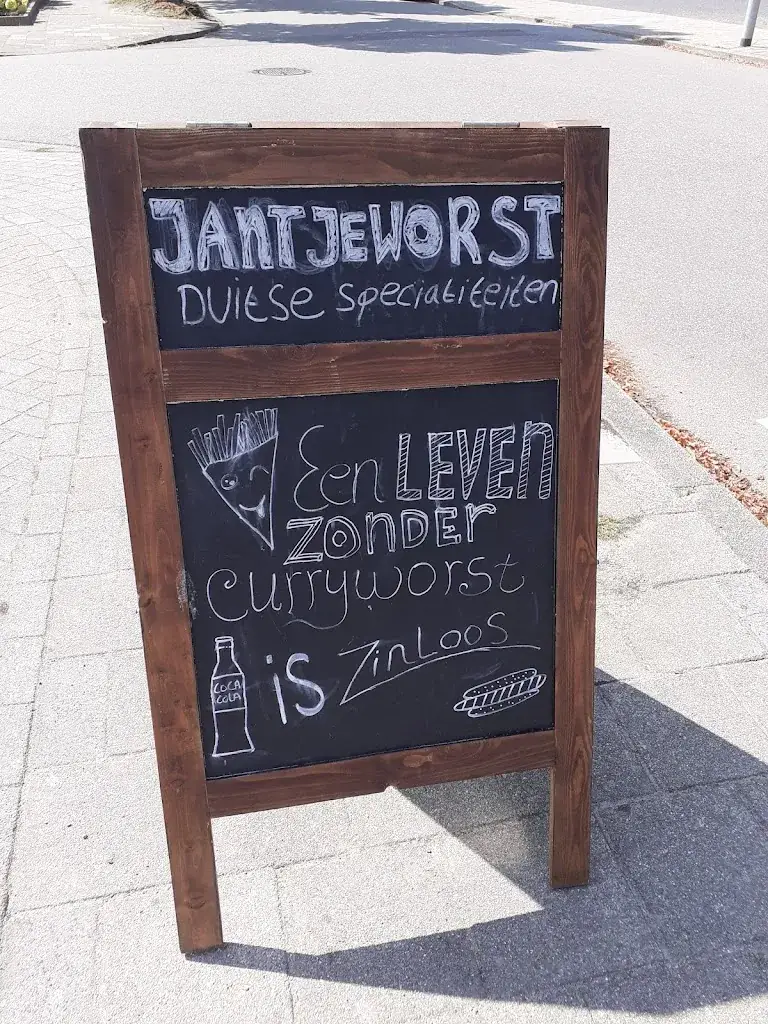 JANTJEWORST
DUITSE SPECIALITEITEN
Een LEVEN
ZONDER
Curryworst
COCA
COLA
is ZINLOOS